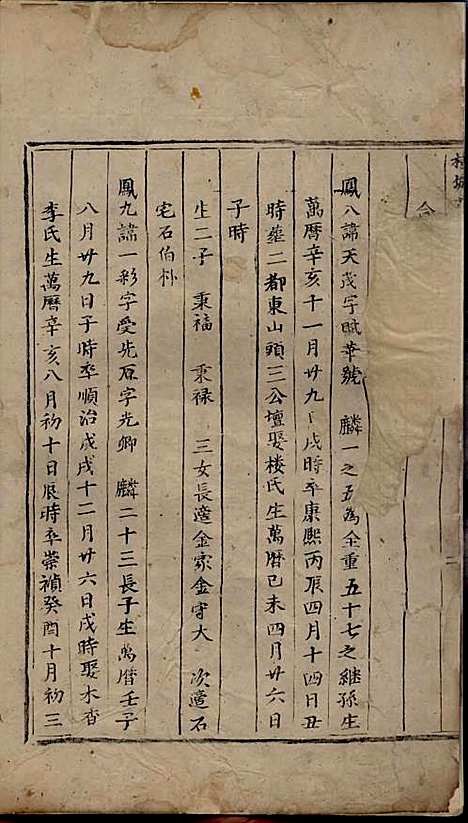 鳳八諱天茂字賦華號　麟一之五為全重五十七之継孫生
萬曆辛亥十一月廿九日戌時卒康熙丙辰四月十四日丑
時葬二都東山頭三公壇娶楼氏生萬曆己未四月廿六日
子時
生二子　秉福　秉禄　三女長適金家金守大　次適石
宅石伯朴
鳳九諱一彩字受先原字光卿　麟二十三長子生萬曆壬子
八月廿九日子時卒順治戊戌十二月廿六日戌時娶木香
李氏生萬曆辛亥八月初十日辰時卒崇禎癸酉十月初三